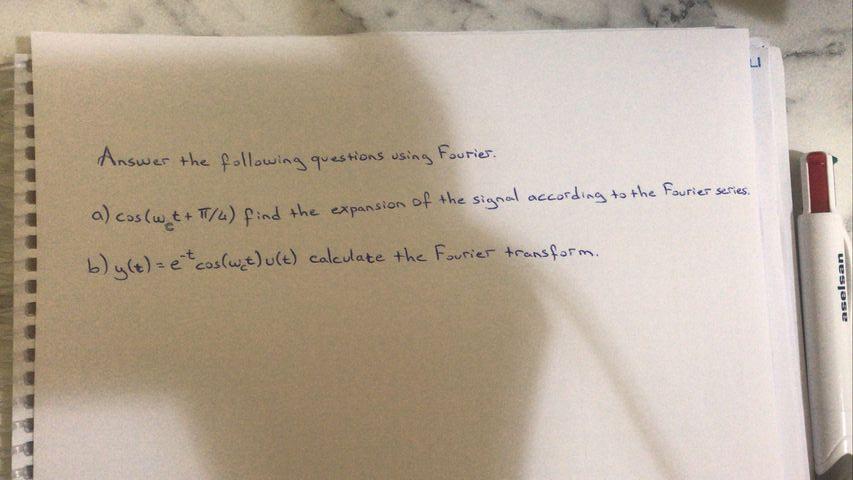 Answer the following questions using Fourier.
a) cos(w_c t + π/4) find the expansion of the signal according to the Fourier series.
b) y(t) = e^-t cos(w_c t) u(t) calculate the Fourier transform.
aselsan